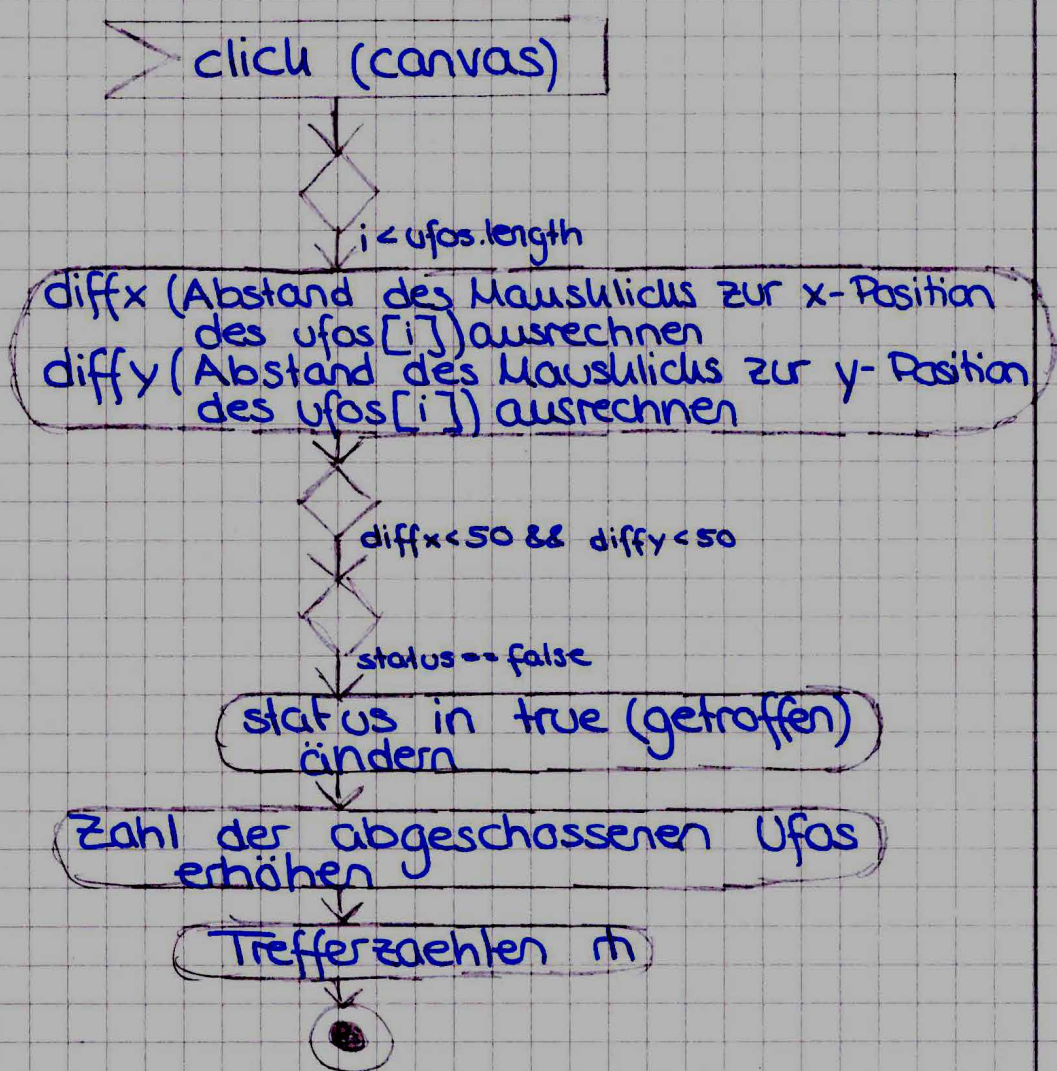 click (canvas)
i < ufos.length
diffx (Abstand des Mausklicks zur x-Position
des ufos[i]) ausrechnen
diffy (Abstand des Mausklicks zur y-Position
des ufos[i]) ausrechnen
diffx < 50 && diffy < 50
status == false
status in true (getroffen)
ändern
Zahl der abgeschossenen Ufos
erhöhen
Trefferzaehlen